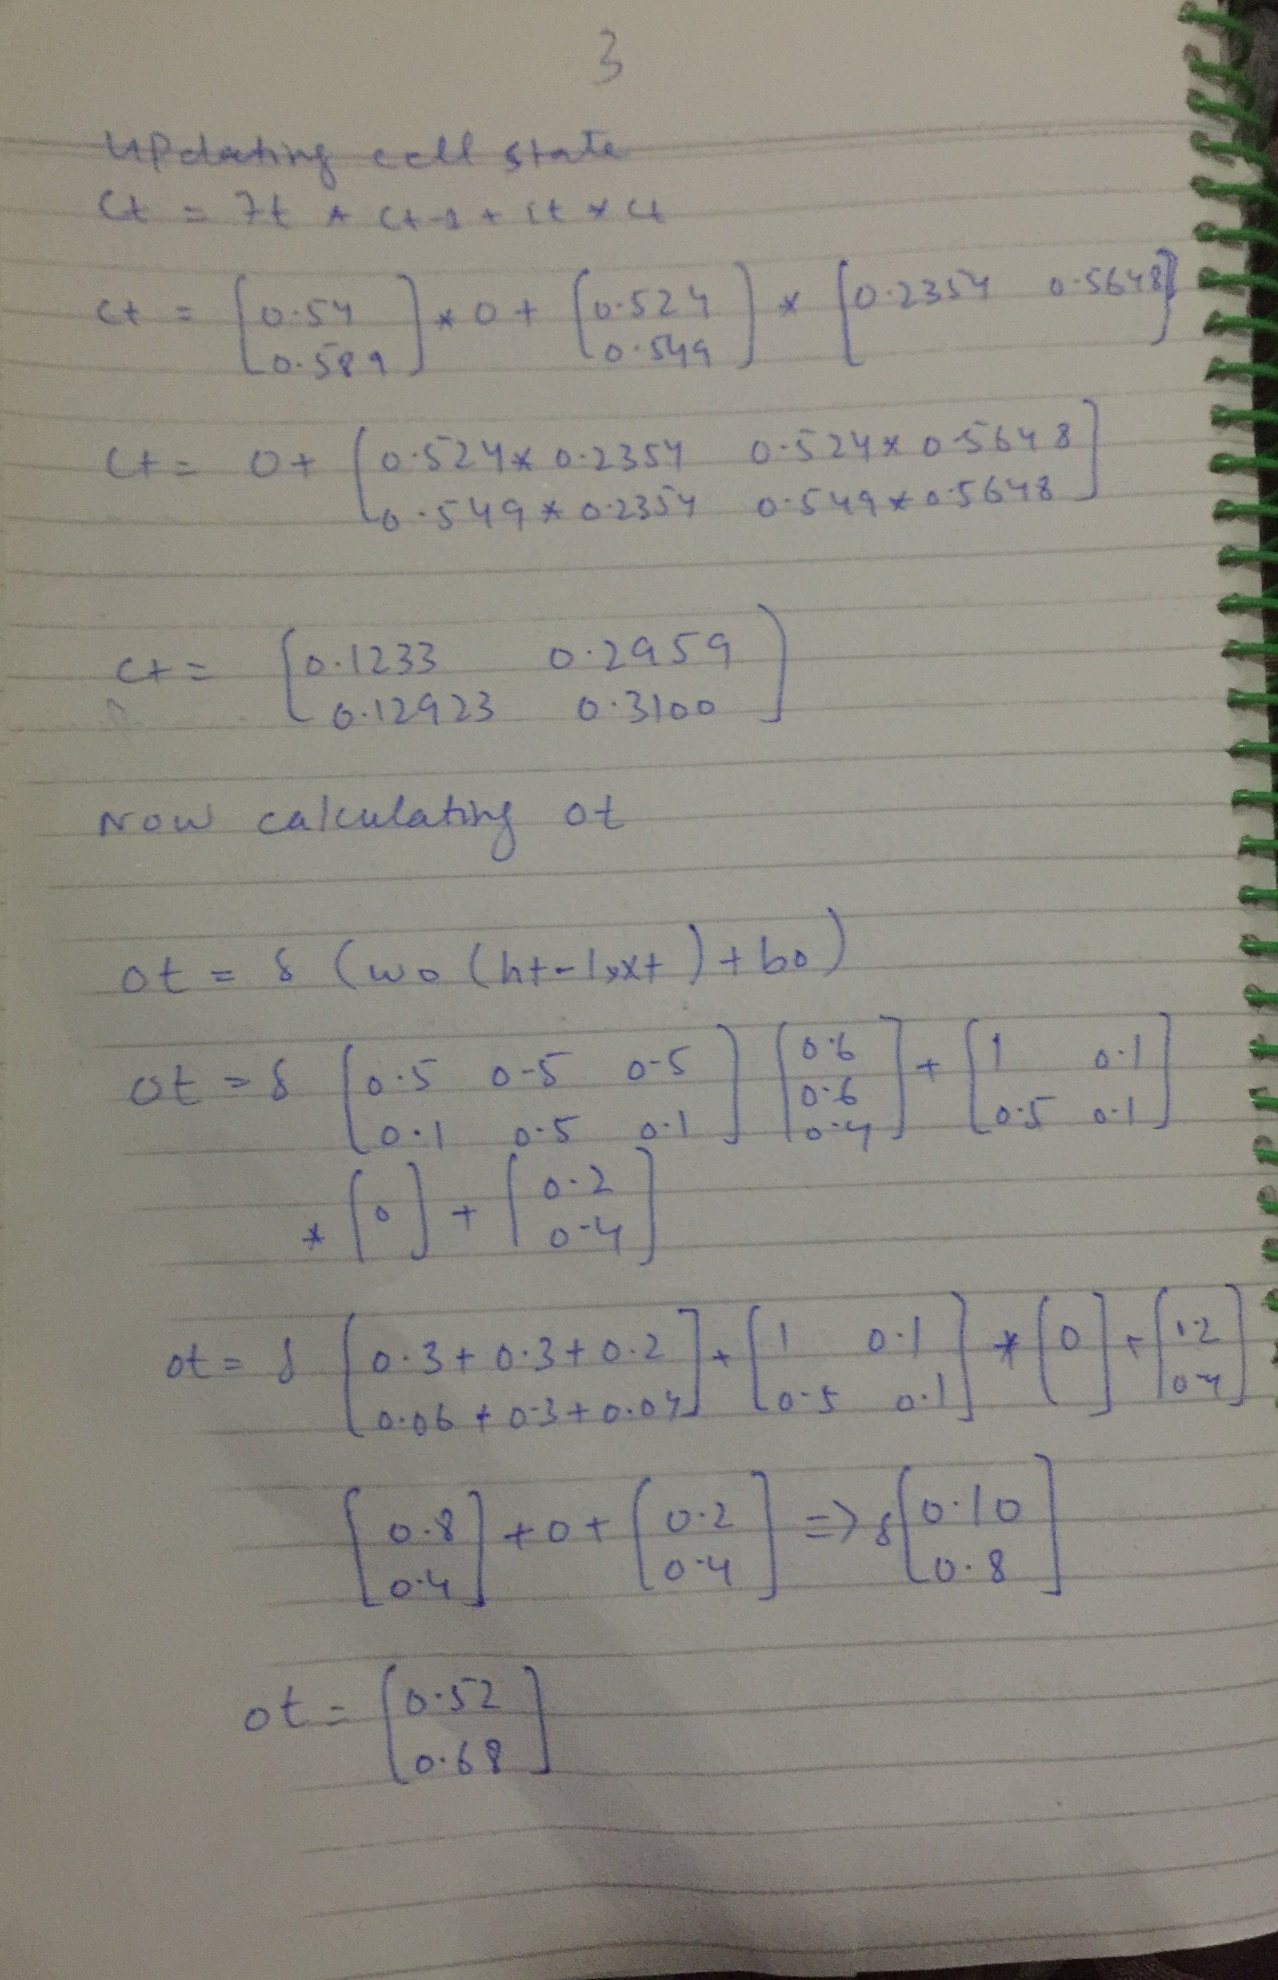 3
Updating cell state
Ct = 7t * Ct-1 + it * Ct
Ct = [0.54 ] * 0 + [0.524 ] * [0.2354 0.5648]
[0.589] [0.549]
Ct = 0 + [0.524 * 0.2354 0.524 * 0.5648]
[0.549 * 0.2354 0.549 * 0.5648]
Ct = [0.1233 0.2959]
[0.12923 0.3100]
Now calculating ot
ot = δ (wo (ht-1, xt) + bo)
ot = δ [0.5 0.5 0.5] [0.6] + [1 0.1]
[0.1 0.5 0.1] [0.6] [0.5 0.1]
[0.4]
* [0] + [0.2]
[0.4]
ot = δ [0.3 + 0.3 + 0.2] + [1 0.1] * [0] + [0.2]
[0.06 + 0.3 + 0.04] [0.5 0.1] [0.4]
[0.8] + 0 + [0.2] => δ [0.10]
[0.4] [0.4] [0.8]
ot = [0.52]
[0.68]